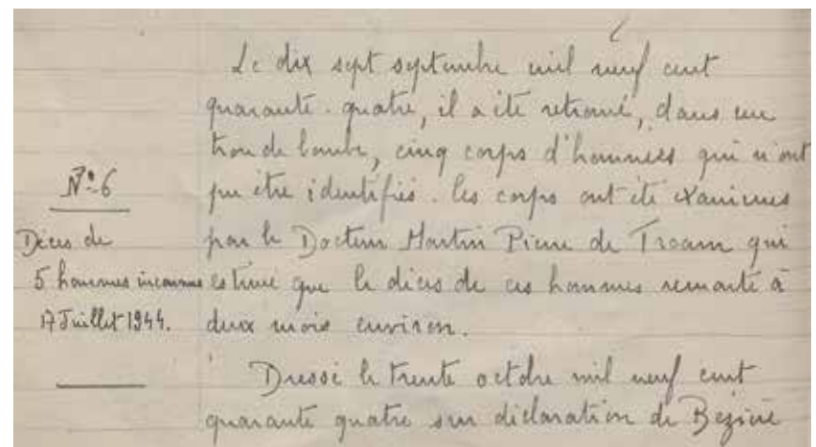 Le dix sept septembre mil neuf cent
quarante-quatre, il a été retrouvé, dans un
trou de bombe, cinq corps d'hommes qui n'ont
pu être identifiés. Les corps ont été examinés
par le Docteur Martin Pierre de Troarn qui
estime que le décès de ces hommes remonte à
deux mois environ.
Dressé le trente octobre mil neuf cent
quarante quatre sur déclaration de Bezière
N° 6
Décès de
5 hommes inconnus
17 Juillet 1944.